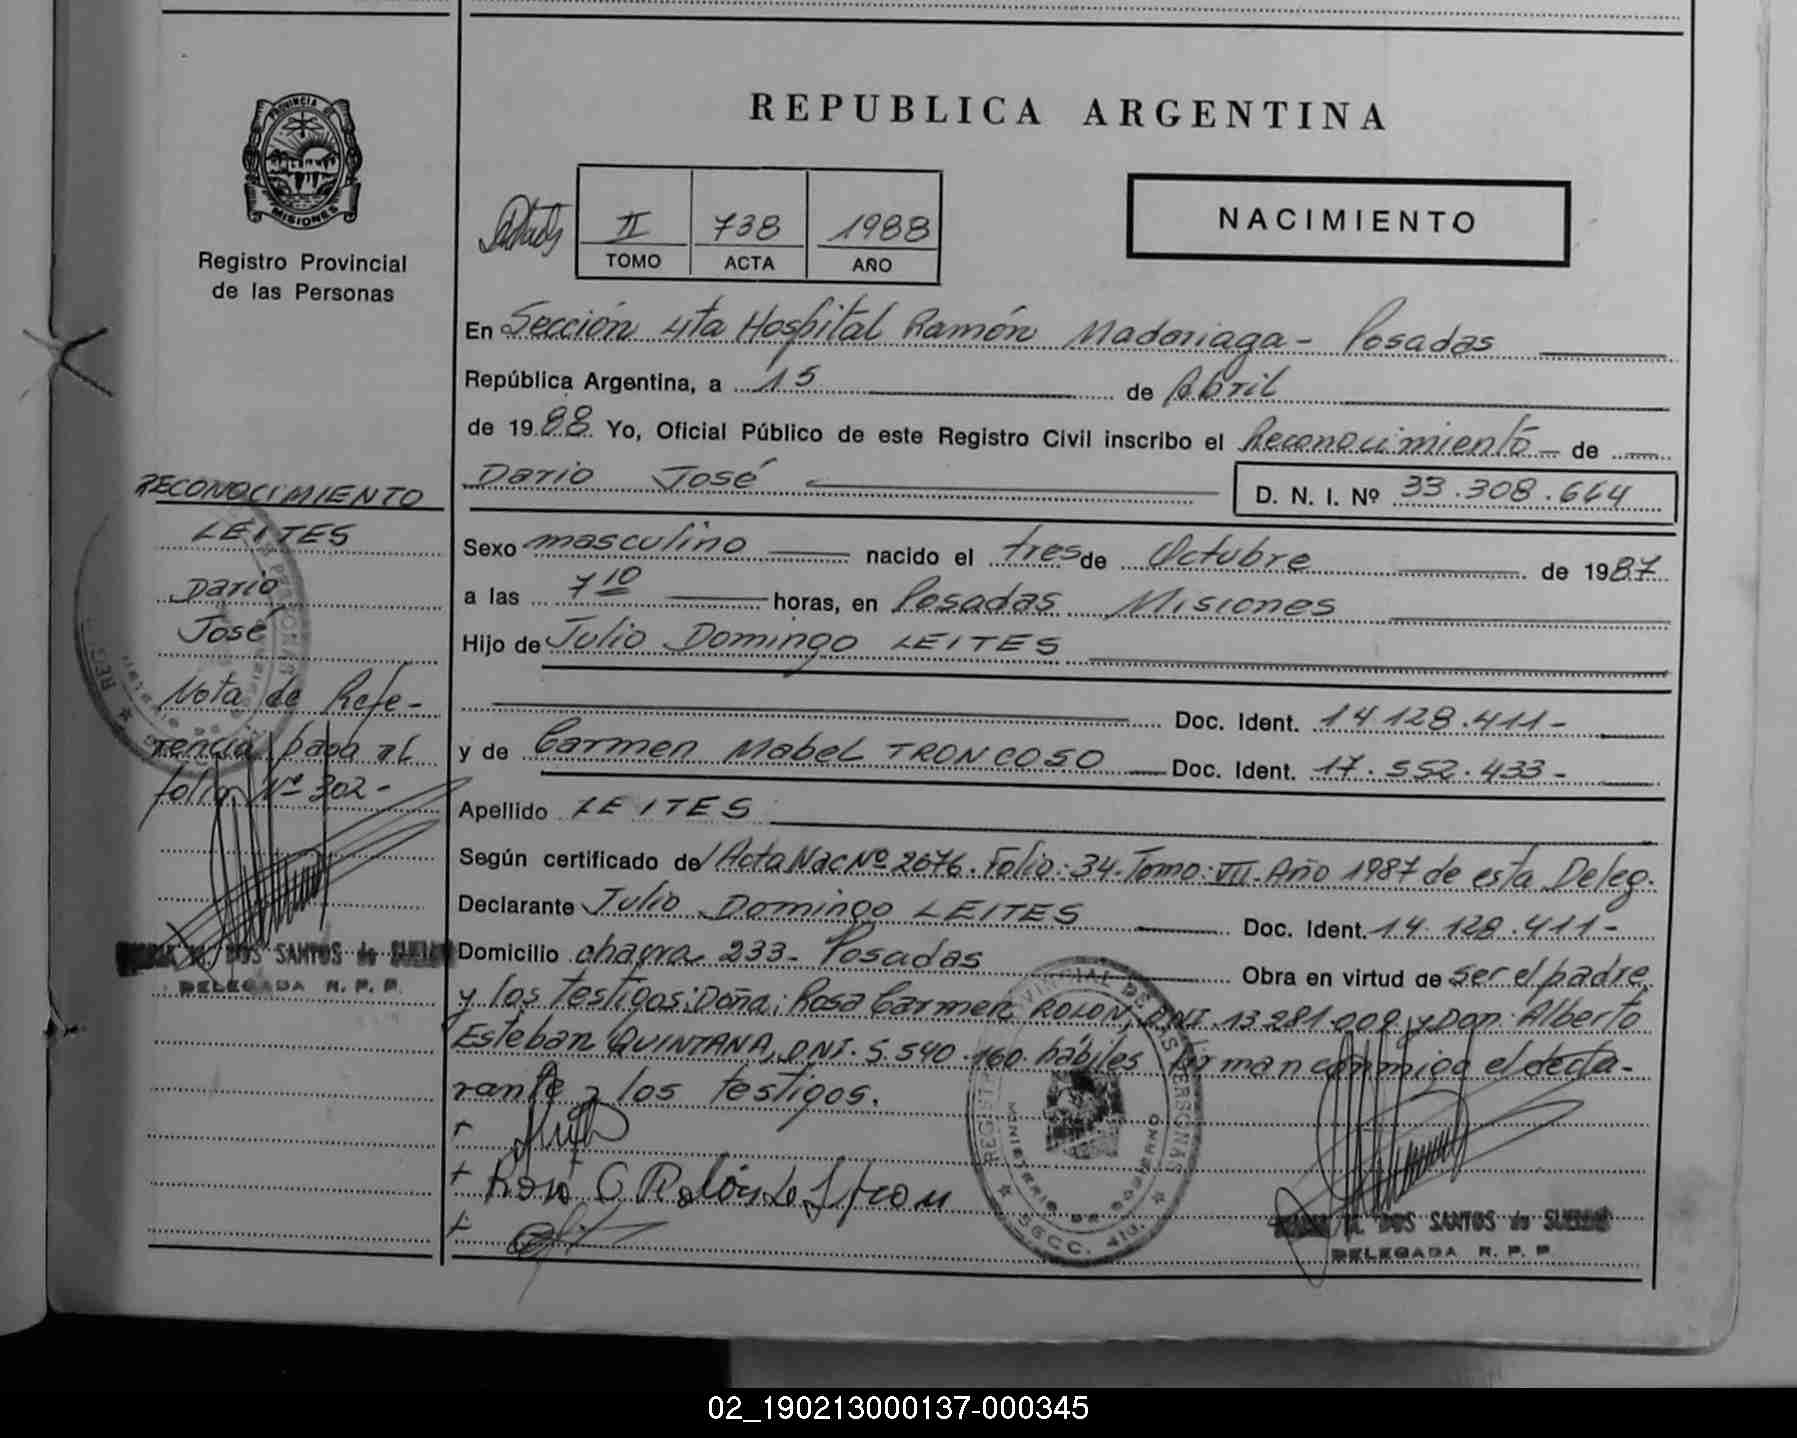 REPUBLICA ARGENTINA
PROVINCIA DE
MISIONES
Registro Provincial
de las Personas
II 738 1988
TOMO ACTA AÑO
NACIMIENTO
En Sección 4ta Hospital Ramón Madariaga - Posadas
República Argentina, a 15 de Abril
de 1988 Yo, Oficial Público de este Registro Civil inscribo el Reconocimiento de
Dario José D. N. I. Nº 33.308.664
Sexo masculino nacido el tres de Octubre de 1987
a las 7 10 horas, en Posadas Misiones
Hijo de Julio Domingo LEITES
Doc. Ident. 14.128.411-
y de Carmen Mabel TRONCOSO Doc. Ident. 17.552.433-
Apellido LEITES
Según certificado de Acta Nac Nº 2676. Folio: 34. Tomo: VII. Año 1987 de esta Deleg.
Declarante Julio Domingo LEITES Doc. Ident. 14.128.411-
Domicilio chacra 233- Posadas Obra en virtud de ser el padre,
y los testigos: Doña: Rosa Carmen ROLON, DNI. 13.281.009 y Don: Alberto
Esteban QUINTANA, DNI. 5.540.160. hábiles firman conmigo el decla-
rante y los testigos.
RECONOCIMIENTO
LEITES
Dario
José
Nota de Refe-
rencia pasa al
folio Nº 302-
DOS SANTOS de
DELEGADA R. P. P.
REGISTRO PROVINCIAL DE LAS PERSONAS
MINISTERIO DE GOBIERNO
SECC. 4ta.
DOS SANTOS de
DELEGADA R. P. P.
02_190213000137-000345